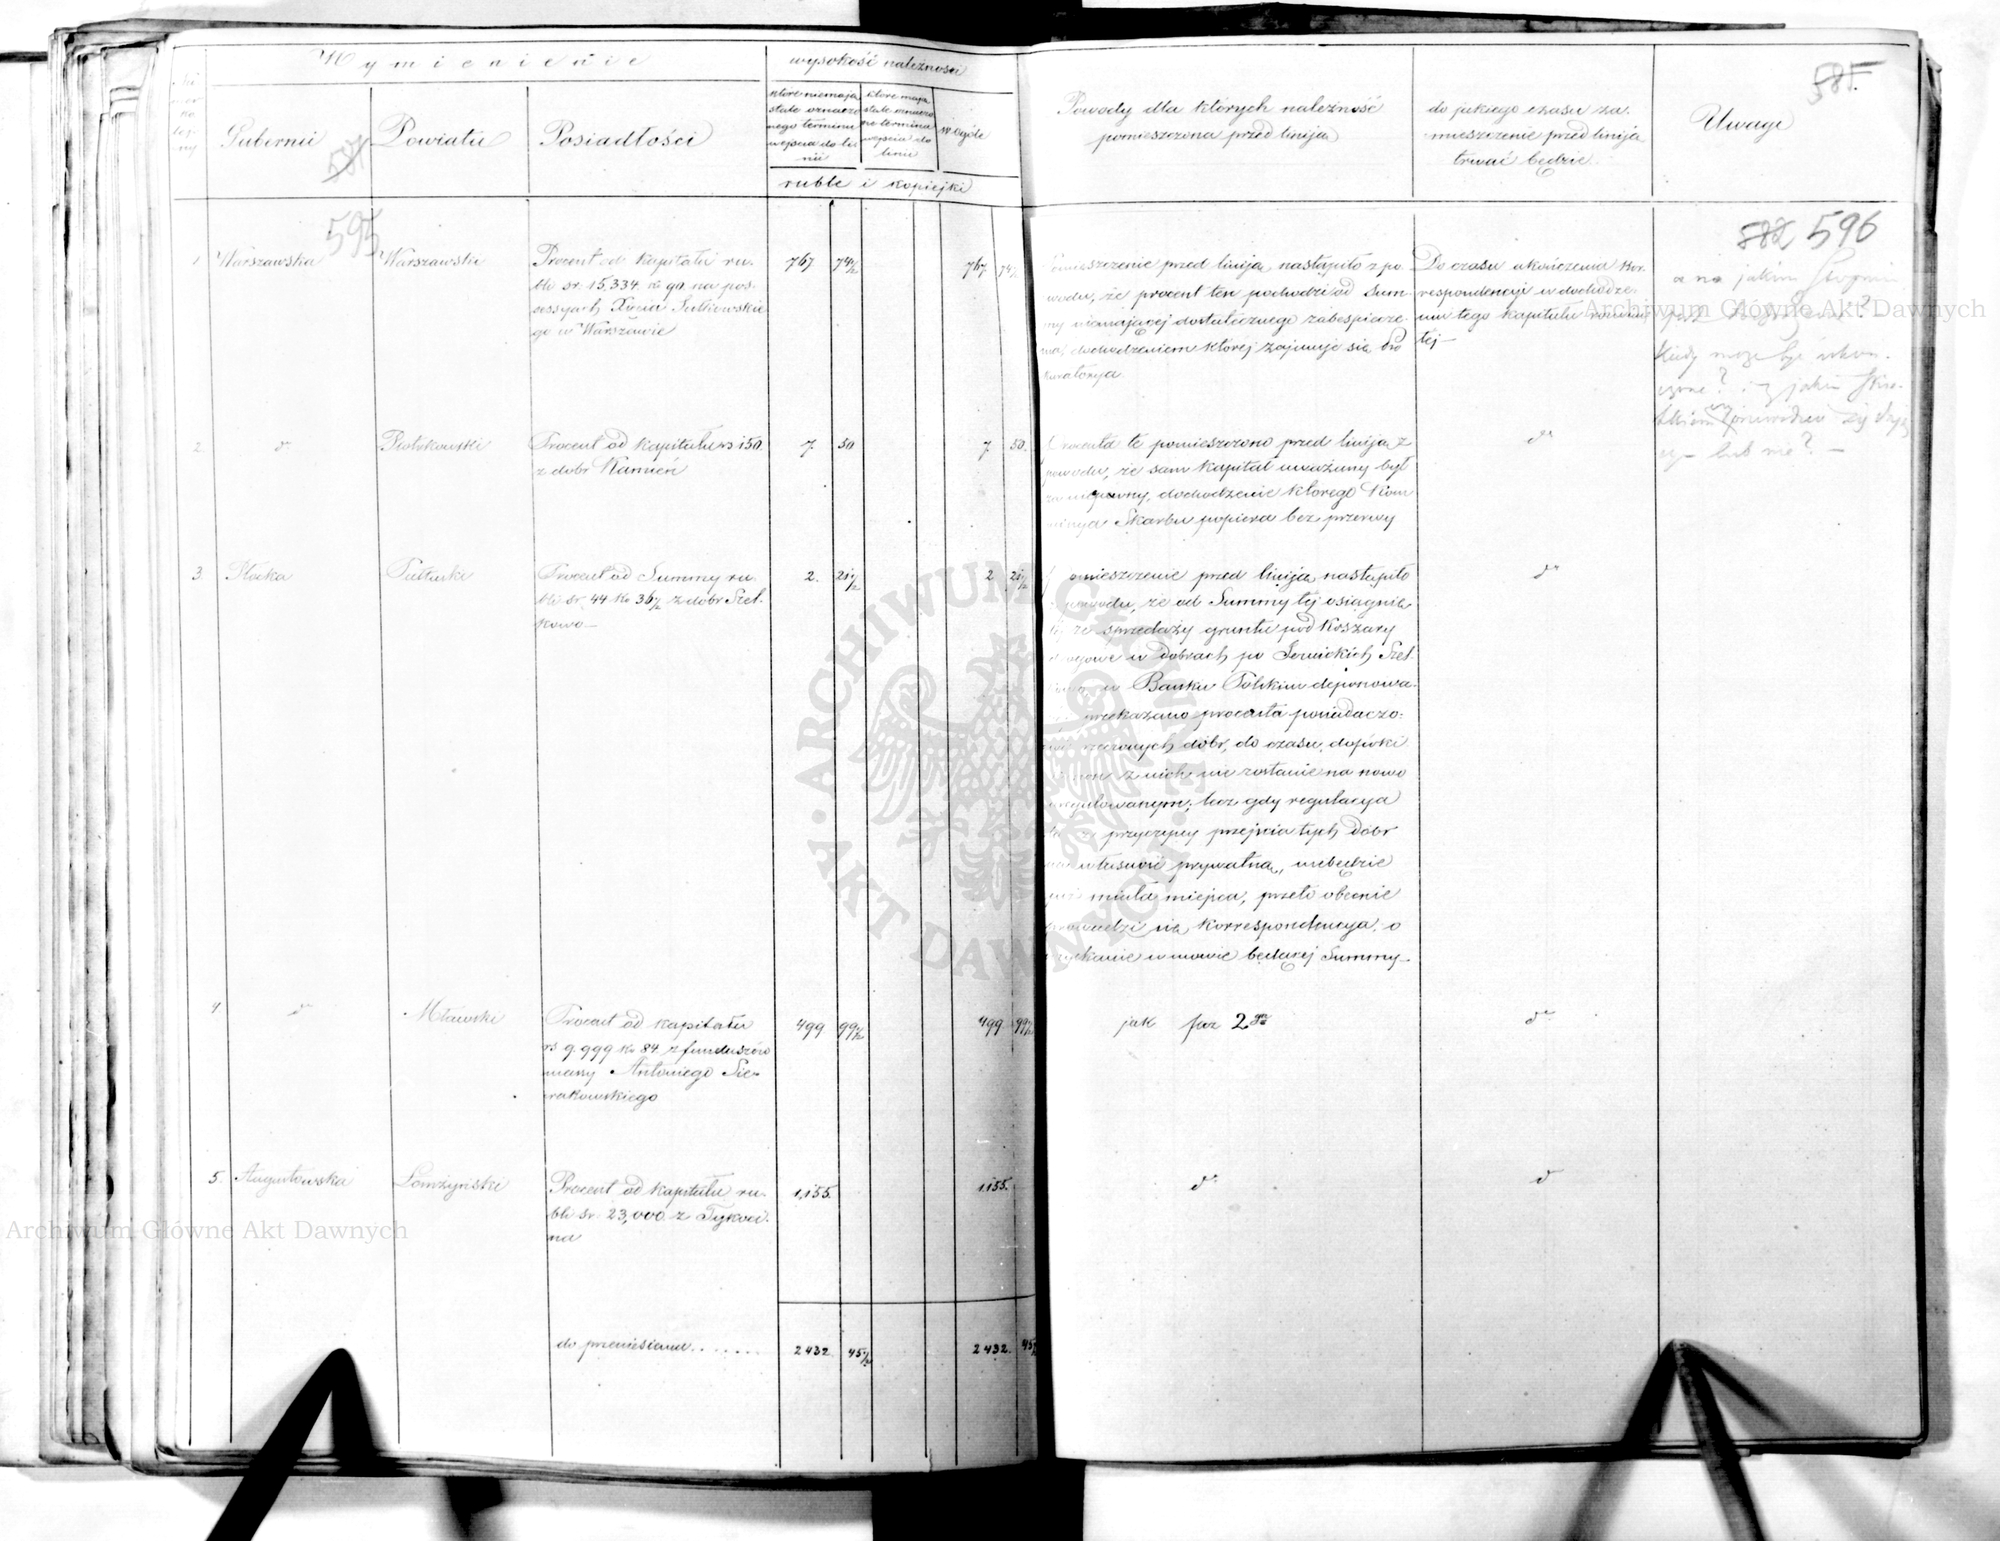 Wymienienie
wysokość należności
Gubernii
Powiatu
Posiadłości
które niemają
stale oznaczo
nego terminu
wejścia do li-
nii
które mają
stale oznaczo
ne termina
wejścia do
linii
w Ogóle
ruble i kopiejki
Powody dla których należność
pomieszczona przed linija
do jakiego czasu za-
mieszczenie przed linija
trwać będzie
Uwagi
585.
595
582 596
1 Warszawska Warszawski
Procent od kapitału ru-
bli sr. 15,334 k 90 na pos-
sessyach Xięcia Sułkowskie-
go w Warszawie
767 74½ 767 74½
Pomieszczenie przed linija nastąpiło z po-
wodu, że procent ten pochodzi od Sum-
my niemającej dostatecznego zabespiecze-
nia, dochodzeniem której zajmuje się Pro
kuratorya
Do czasu ukończenia kor-
respondencyi w dochodze-
niu tego kapitału
a na jakim
jest
Kiedy może być ukoń-
czone? i z jakim sku-
tkiem
czy lub nie? —
2. do Piotrkowski
Procent od kapitału rs 150
z dobr Kamień
7 50 7 50.
Procenta te pomieszczono przed linija z
powodu, że sam kapitał uważany był
za niepewny, dochodzenie którego Kom
missya Skarbu popiera bez przerwy
do
3. Płocka Pułtuski
Procent od Summy ru-
bli sr. 44 k 36½ z dobr Szel-
kowo
2. 21½ 2 21½
Pomieszczenie przed linija nastąpiło
z powodu, że od Summy tej osiągnię-
tej ze sprzedaży gruntu pod Koszary
w dobrach po Jezuickich Szel-
w Banku Polskim deponowa-
przekazano procenta posiadaczo-
wi rzeczonych dóbr, do czasu, dopóki
z nich nie zostanie na nowo
uregulowanym; lecz gdy regulacya
z przyczyny przejścia tych dóbr
na własność prywatną, niebędzie
już miała miejsca, przeto obecnie
prowadzi się korrespondencya, o
w mowie będącej Summy
do
4 do Mławski
Procent od kapitału
rs 9.999 k 84 z funduszów
massy Antoniego Sie-
rakowskiego
499 99½ 499 99½
jak poz 2ga
do
5. Augustowska Łomżyński
Procent od kapitału ru-
bli sr. 23,000 z Tykoci-
na
1,155. 1,155.
do
do
do przeniesienia.......
2432 45½ 2432. 45½
Archiwum Główne Akt Dawnych
Archiwum Główne Akt Dawnych
ARCHIWUM GŁÓWNE AKT DAWNYCH